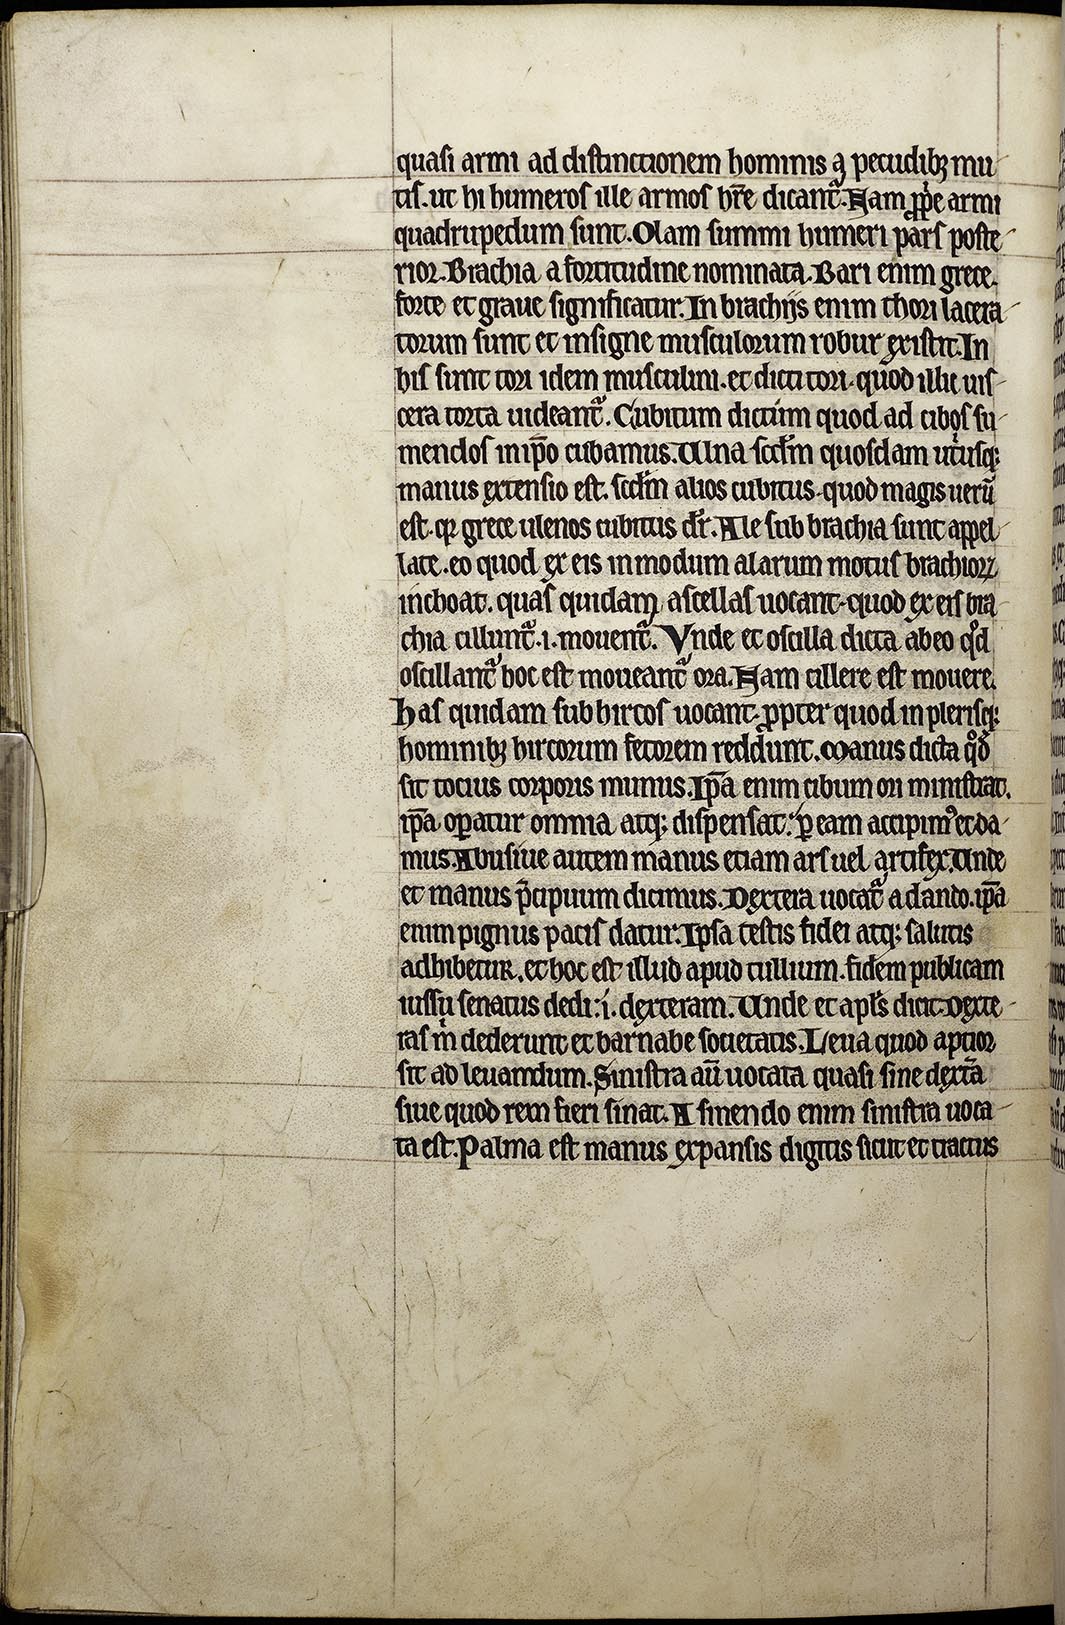 quasi armi ad distinctionem hominis a pecudibꝫ mu
tis. ut hi humeros ille armos hr̄e dicant᷑. Nam ꝓp̍e armi
quadrupedum sunt. Olam summi humeri pars poste
rior. Brachia a fortitudine nominata. Bari enim grece.
forte et graue significatur. In brachijs enim thori lacera
torum sunt et insigne musculorum robur existit. In
his sunt tori idem musculini. et dicti tori. quod illic uis
cera torta uideant᷑. Cubitum dictum quod ad cibos su
mendos in ip̄o cubamus. Ulna scd̄m quosdam utⁱusqꝫ
manus extensio est. scd̄m alios cubitus. quod magis uerū
est. qꝛ grece ulenos cubitus dr̄. Ale sub brachia sunt appel
late. eo quod ex eis in modum alarum motus brachioꝝ
inchoat. quas quidam ascellas uocant. quod ex eis bra
chia cillunt᷑. i. mouent᷑. Vnde et oscilla dicta ab eo qͦd
oscillant᷑ hoc est moueant᷑ ora. Nam cillere est mouere.
Has quidam subhircos uocant. ꝓpter quod in plerisqꝫ
hominibꝫ hircorum fetorem reddunt. Manus dicta qͦd
sit tocius corporis munus. Ip̄a enim cibum ori ministrat.
ip̄a oꝑatur omnia atqꝫ dispensat. ꝑ eam accipimꝰ et da
mus Abusiue autem manus etiam ars uel artifex. Unde
et manus p̄cipuum dicimus. Dextera uocat᷑ a dando. ip̄a
enim pignus pacis datur. Ipsa testis fidei atqꝫ salutis
adhibetur. et hoc est illud apud tullium. fidem publicam
iussu senatus dedi. i. dexteram. Unde et apl̄s dicit. Dexte
ras mⁱ dederunt et barnabe societatis. Leua quod aptior
sit ad leuamdum. Sinistra aū uocata quasi sine dext̄a
siue quod rem fieri sinat. A sinendo enim sinistra uoca
ta est. Palma est manus expansis digitis sicut et tractus